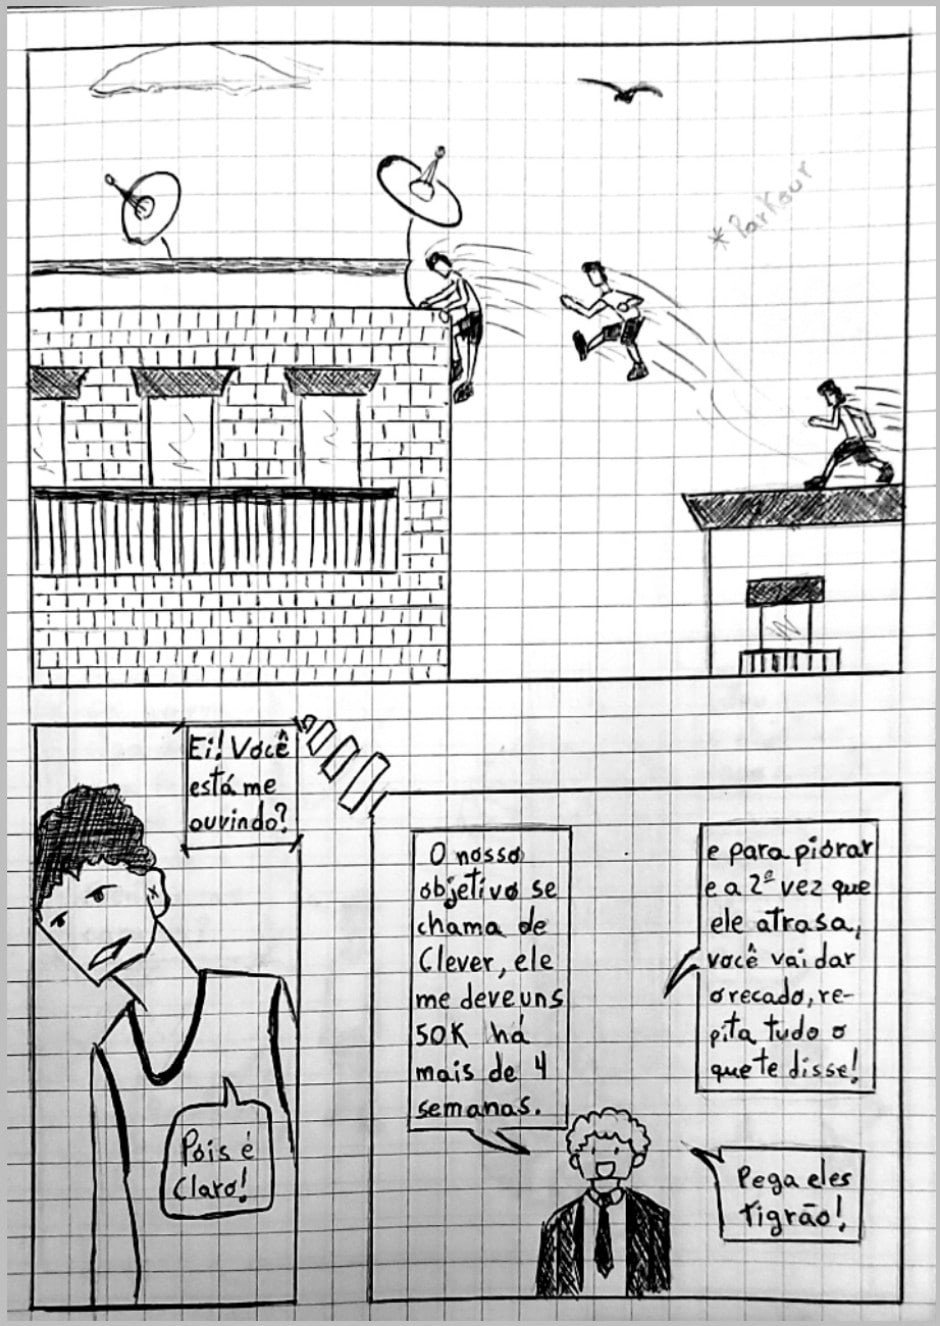 *Parkour
Ei! Você
está me
ouvindo?
Pois é
Claro!
O nosso
objetivo se
chama de
Clever, ele
me deve uns
50K há
mais de 4
semanas.
e para piorar
e a 2ª vez que
ele atrasa,
você vai dar
o recado, re-
pita tudo o
que te disse!
Pega eles
tigrão!